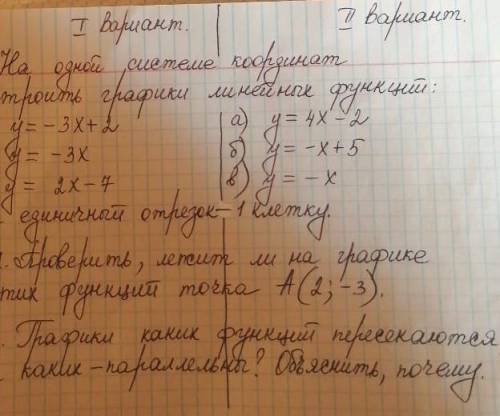 I вариант. II вариант.
На одной системе координат
троить графики линейных функций:
y = -3x+2 а) y = 4x-2
y = -3x б) y = -x+5
y = 2x-7 в) y = -x
единичный отрезок - 1 клетку.
. Проверить, лежит ли на графике
тих функций точка А(2; -3).
. Графики каких функций пересекаются
каких - параллельны? Объяснить, почему.